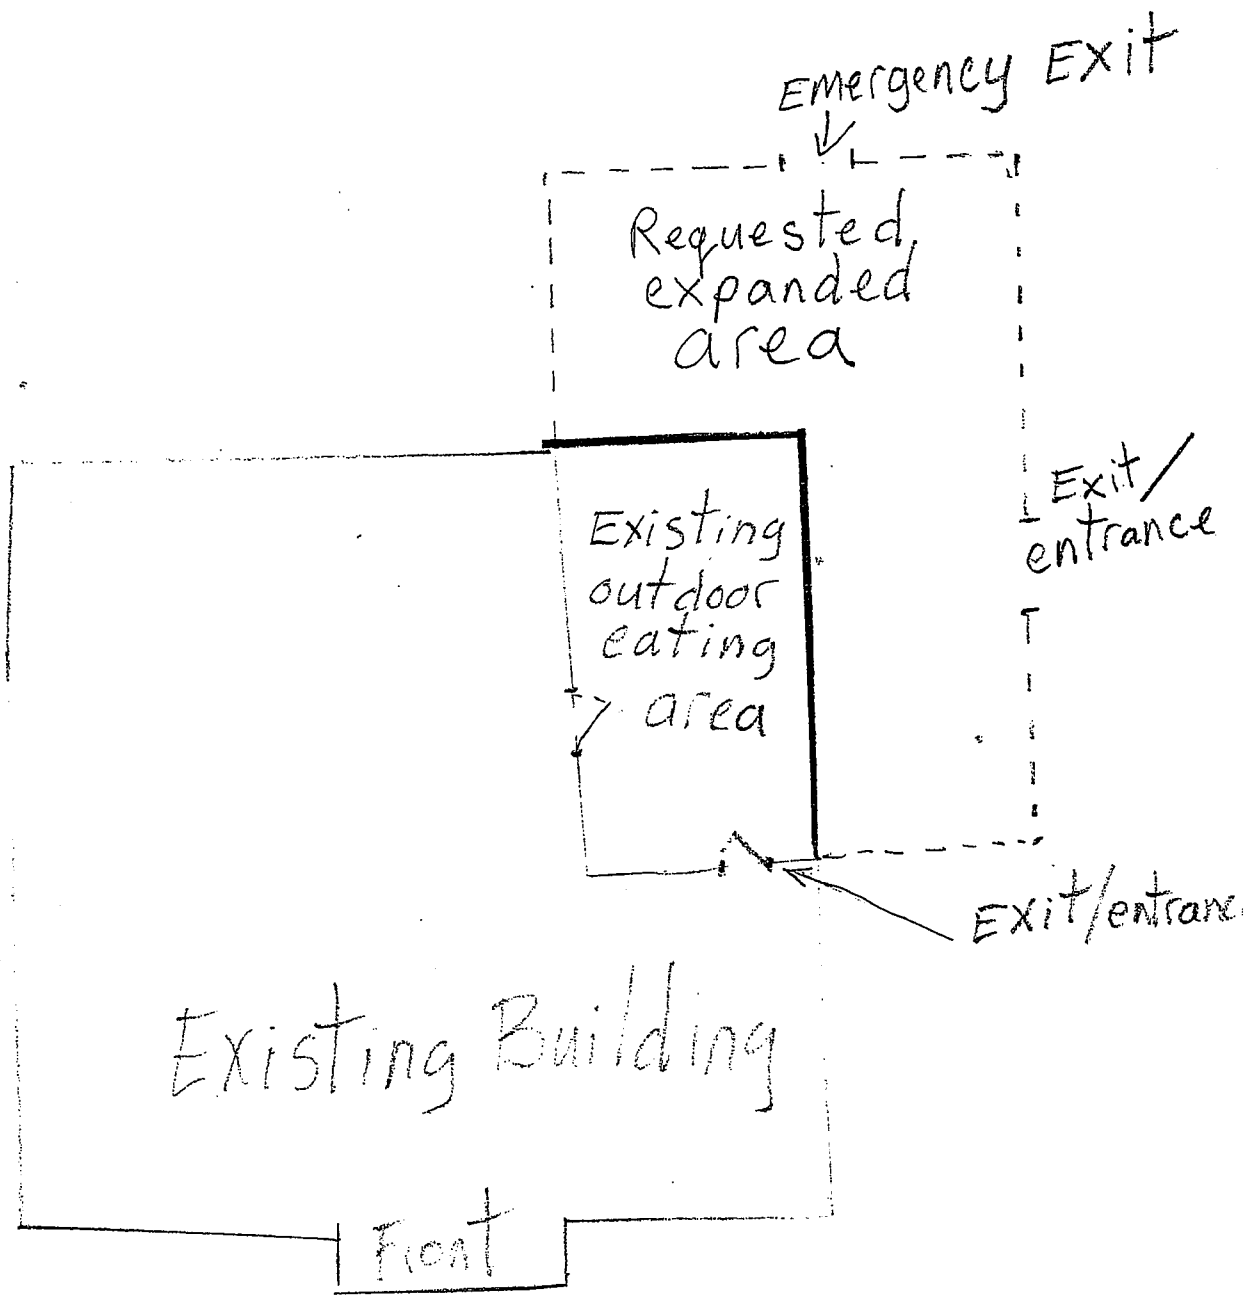 Emergency Exit
Requested
expanded
area
Exit/
entrance
Existing
outdoor
eating
area
Exit/entrance
Existing Building
Front